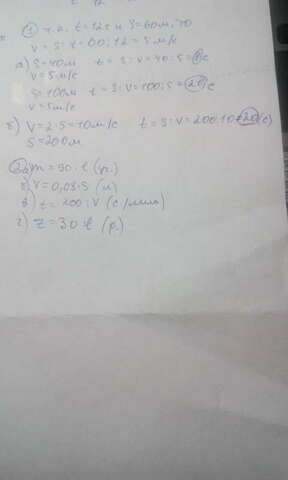 ① т.к. t=12с и S=60м, то
V = S : t = 60 : 12 = 5 м/с
а) S=40м t = S : V = 40 : 5 = 8 с
V=5м/с
S=100м t = S : V = 100 : 5 = 20 с
V=5м/с
б) V = 2 · 5 = 10 м/с t = S : V = 200 : 10 = 20 (с)
S=200м
② а) m = 90 · t (гр.)
V = 0,08 · S (л)
в) t = 200 : V (с/мин)
г) Z = 30 t (р.)